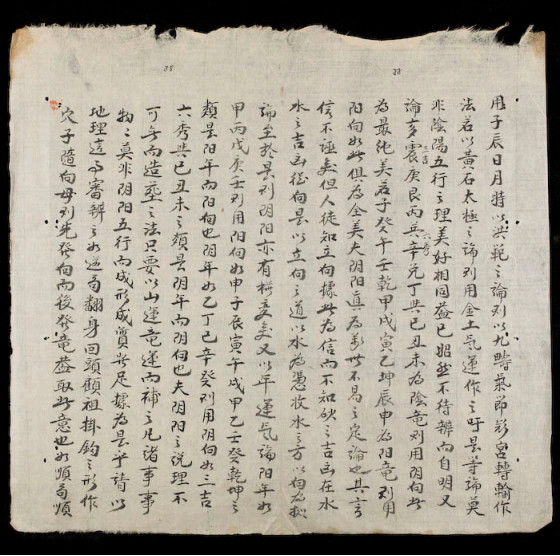 28
28
用子辰日月時以洪範之論則以九疇氣節影宮轉輪作
法若以黃石太極之論則用金土氣運作之吁是等論莫
非陰陽五行之理美好相同益已昭然不待辨而自明又
論多震庚艮丙巽辛兌丁與巳丑未為陰竜則用阴向此
三吉
六秀
為最純美若子癸午壬乾甲戌寅乙坤辰申為阳竜則用
阳向如此俱為全美夫阴阳真為万世不易之定論也其言
信不誣矣但人徒知立向據此為信而不知砂之吉凶在水
水之吉凶從向是以立向之道以水為憑收水之方以向為據
論至於是則阴阳亦有交矣又以年運氣論阳年如
甲丙戊庚壬則用阳向如申子辰寅午戌甲乙壬癸乾坤之
類是阳年而阳向也阴年如乙丁己辛癸則用阴向如三吉
六秀與巳丑未之類是阴年而阴向也夫阴阳之說理不
可无而造塟之法只要以山運竜運而補之凡諸事事
物々莫非阴阳五行而成形成質足據為是乎請以
地理審辨之如逆勾翻身回頭顧祖掛鈎之形作
穴子隨向母則先發向而後發竜益取此意也如順勾順